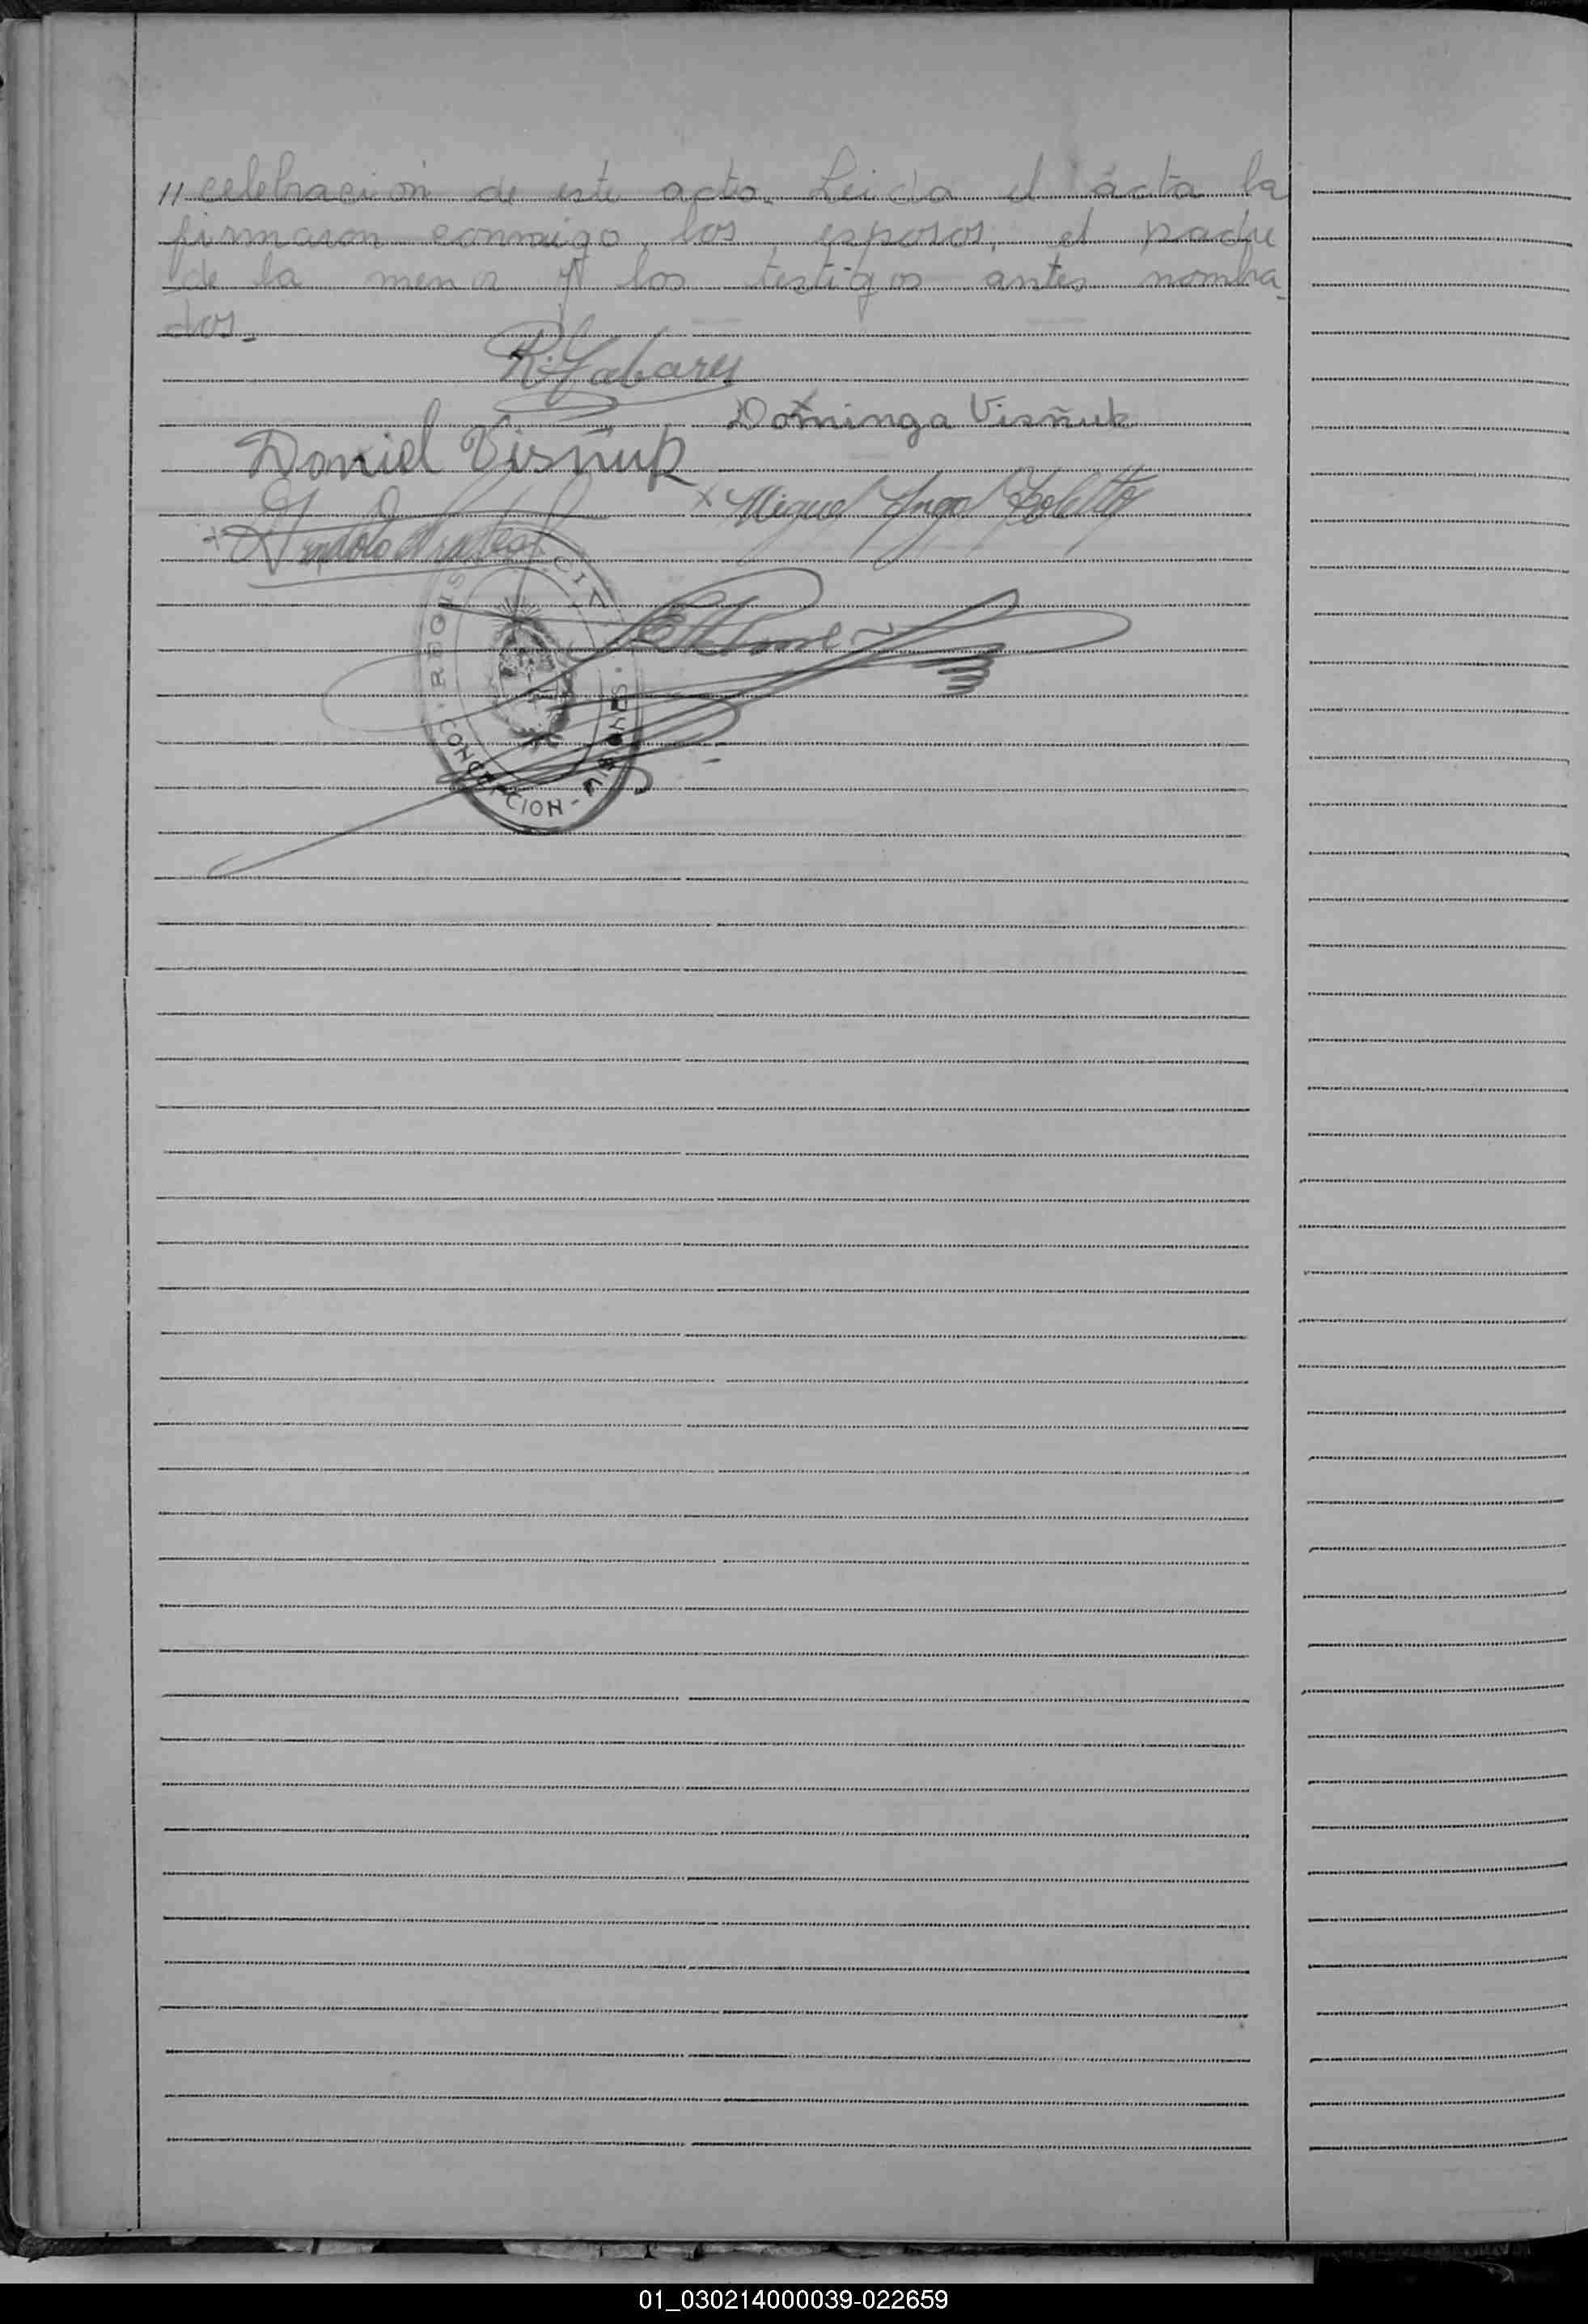 // celebración de este acto. Leida el acta la
firmaron conmigo, los esposos, el padre
de la menor y los testigos antes nombra-
dos.-
R. Tabares
Dominga Visñuk
Daniel Visñuk
x Miguel Angel
REGIS CIVIL
CONCEPCION - MISIONES.
01_030214000039-022659